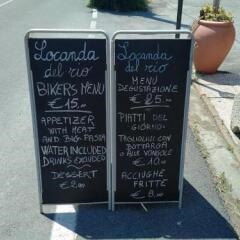 Locanda
del rio
BIKERS MENU
€ 15.00
APPETIZER
WITH MEAT
AND BIG PASTA
WATER INCLUDED
DRINKS EXCLUDED
DESSERT
€ 2.00
Locanda
del rio
MENU
DEGUSTAZIONE
€ 25.00
PIATTI DEL
GIORNO:
TAGLIOLINI CON
BOTTARGA
O ALLE VONGOLE
€ 10.00
ACCIUGHE
FRITTE
€ 8.00